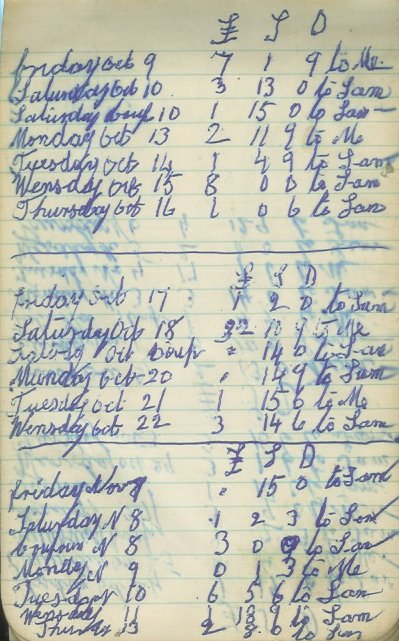 £ S D
friday Oct 9 7 1 9 to Me
Saturday Oct 10 3 13 0 to Sam
Saturday 10 1 15 0 to Sam
Monday Oct 13 2 11 9 to Me
Tuesday Oct 14 1 4 9 to Sam
Wensday Oct 15 8 0 0 to Sam
Thursday Oct 16 1 0 6 to Sam
£ S D
friday Oct 17 1 2 0 to Sam
Saturday Oct 18 10 9 to Me
Oct 14 0 to Sam
Munday Oct 20 14 9 to Sam
Tuesday Oct 21 1 15 6 to Me
Wensday Oct 22 3 14 6 to Sam
£ S D
friday Nov 15 0 to Sam
Saturday N 8 1 2 3 to Sam
N 8 3 0 to Sam
Monday N 9 0 1 3 to Me
Tuesday N 10 6 5 6 to Sam
Wensday 11 1 9 to Sam
13 2 6 to Sam